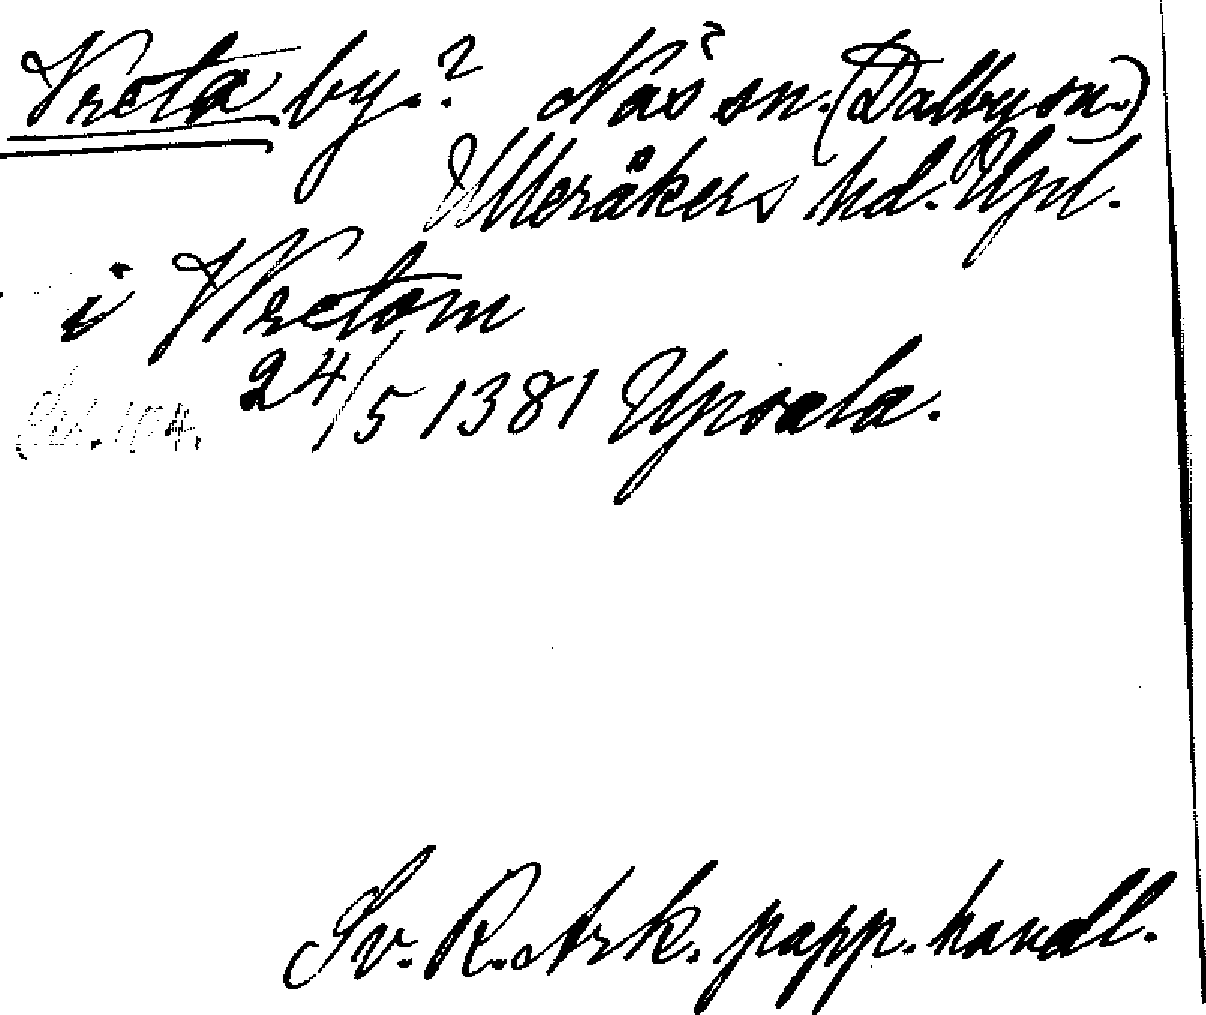 Vreta by.? Näs? sn. (Dalby sn.)
Ulleråkers hd. Upl.
i Vretom
24/5 1381 Upsala.
Sv. R. Ark. papp. handl.